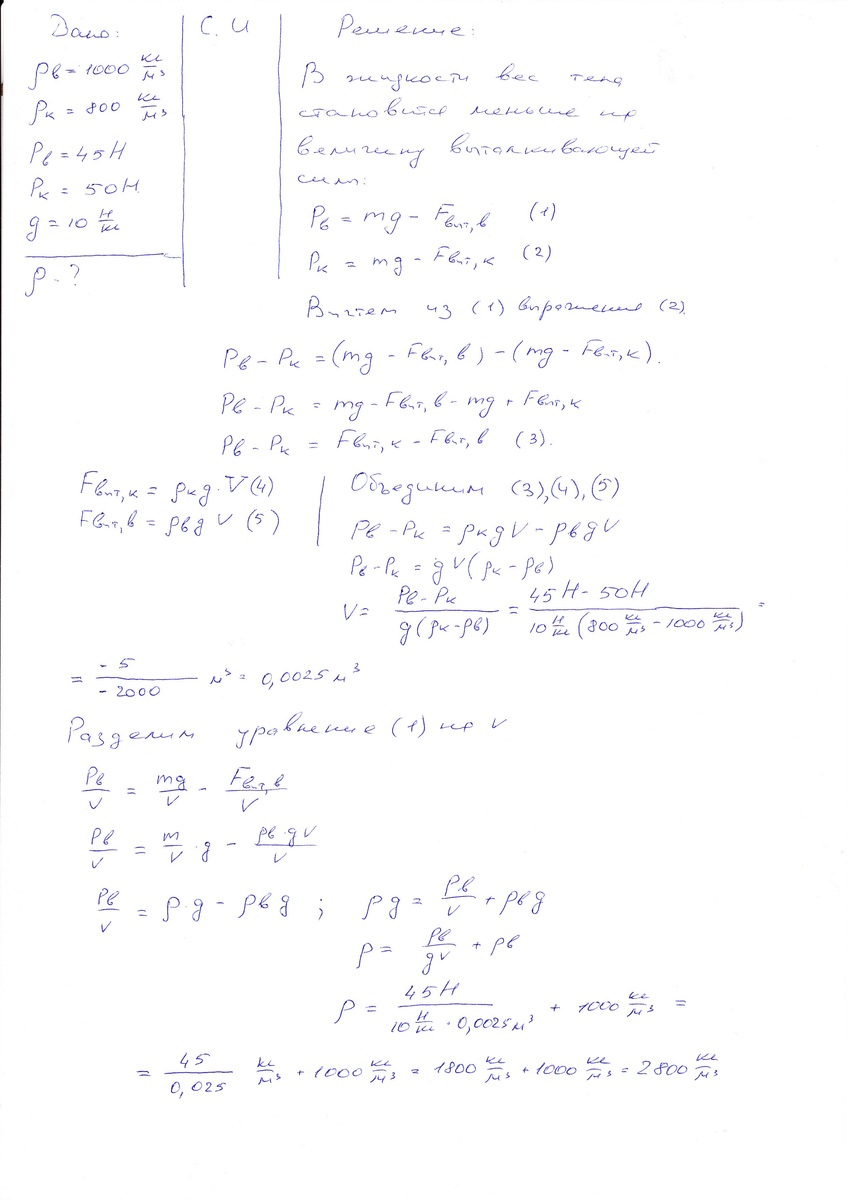 Дано:
ρв = 1000 кг/м³
ρк = 800 кг/м³
Pв = 45 Н
Pк = 50 Н
g = 10 Н/кг
ρ - ?
С. И
Решение:
В жидкости вес тела
становится меньше на
величину выталкивающей
силы:
Pв = mg - Fвыт,в (1)
Pк = mg - Fвыт,к (2)
Вычтем из (1) выражение (2).
Pв - Pк = (mg - Fвыт,в) - (mg - Fвыт,к).
Pв - Pк = mg - Fвыт,в - mg + Fвыт,к
Pв - Pк = Fвыт,к - Fвыт,в (3).
Fвыт,к = ρкg · V (4)
Fвыт,в = ρвg V (5)
Объединим (3),(4),(5)
Pв - Pк = ρкgV - ρвgV
Pв - Pк = gV(ρк - ρв)
V = (Pв - Pк)/(g(ρк - ρв)) = (45 Н - 50 Н)/(10 Н/кг (800 кг/м³ - 1000 кг/м³)) =
= -5/-2000 м³ = 0,0025 м³
Разделим уравнение (1) на V
Pв/V = mg/V - Fвыт,в/V
Pв/V = m/V · g - ρв·gV/V
Pв/V = ρ·g - ρвg ; ρg = Pв/V + ρвg
ρ = Pв/gV + ρв
ρ = 45 Н/(10 Н/кг · 0,0025 м³) + 1000 кг/м³ =
= 45/0,025 кг/м³ + 1000 кг/м³ = 1800 кг/м³ + 1000 кг/м³ = 2800 кг/м³